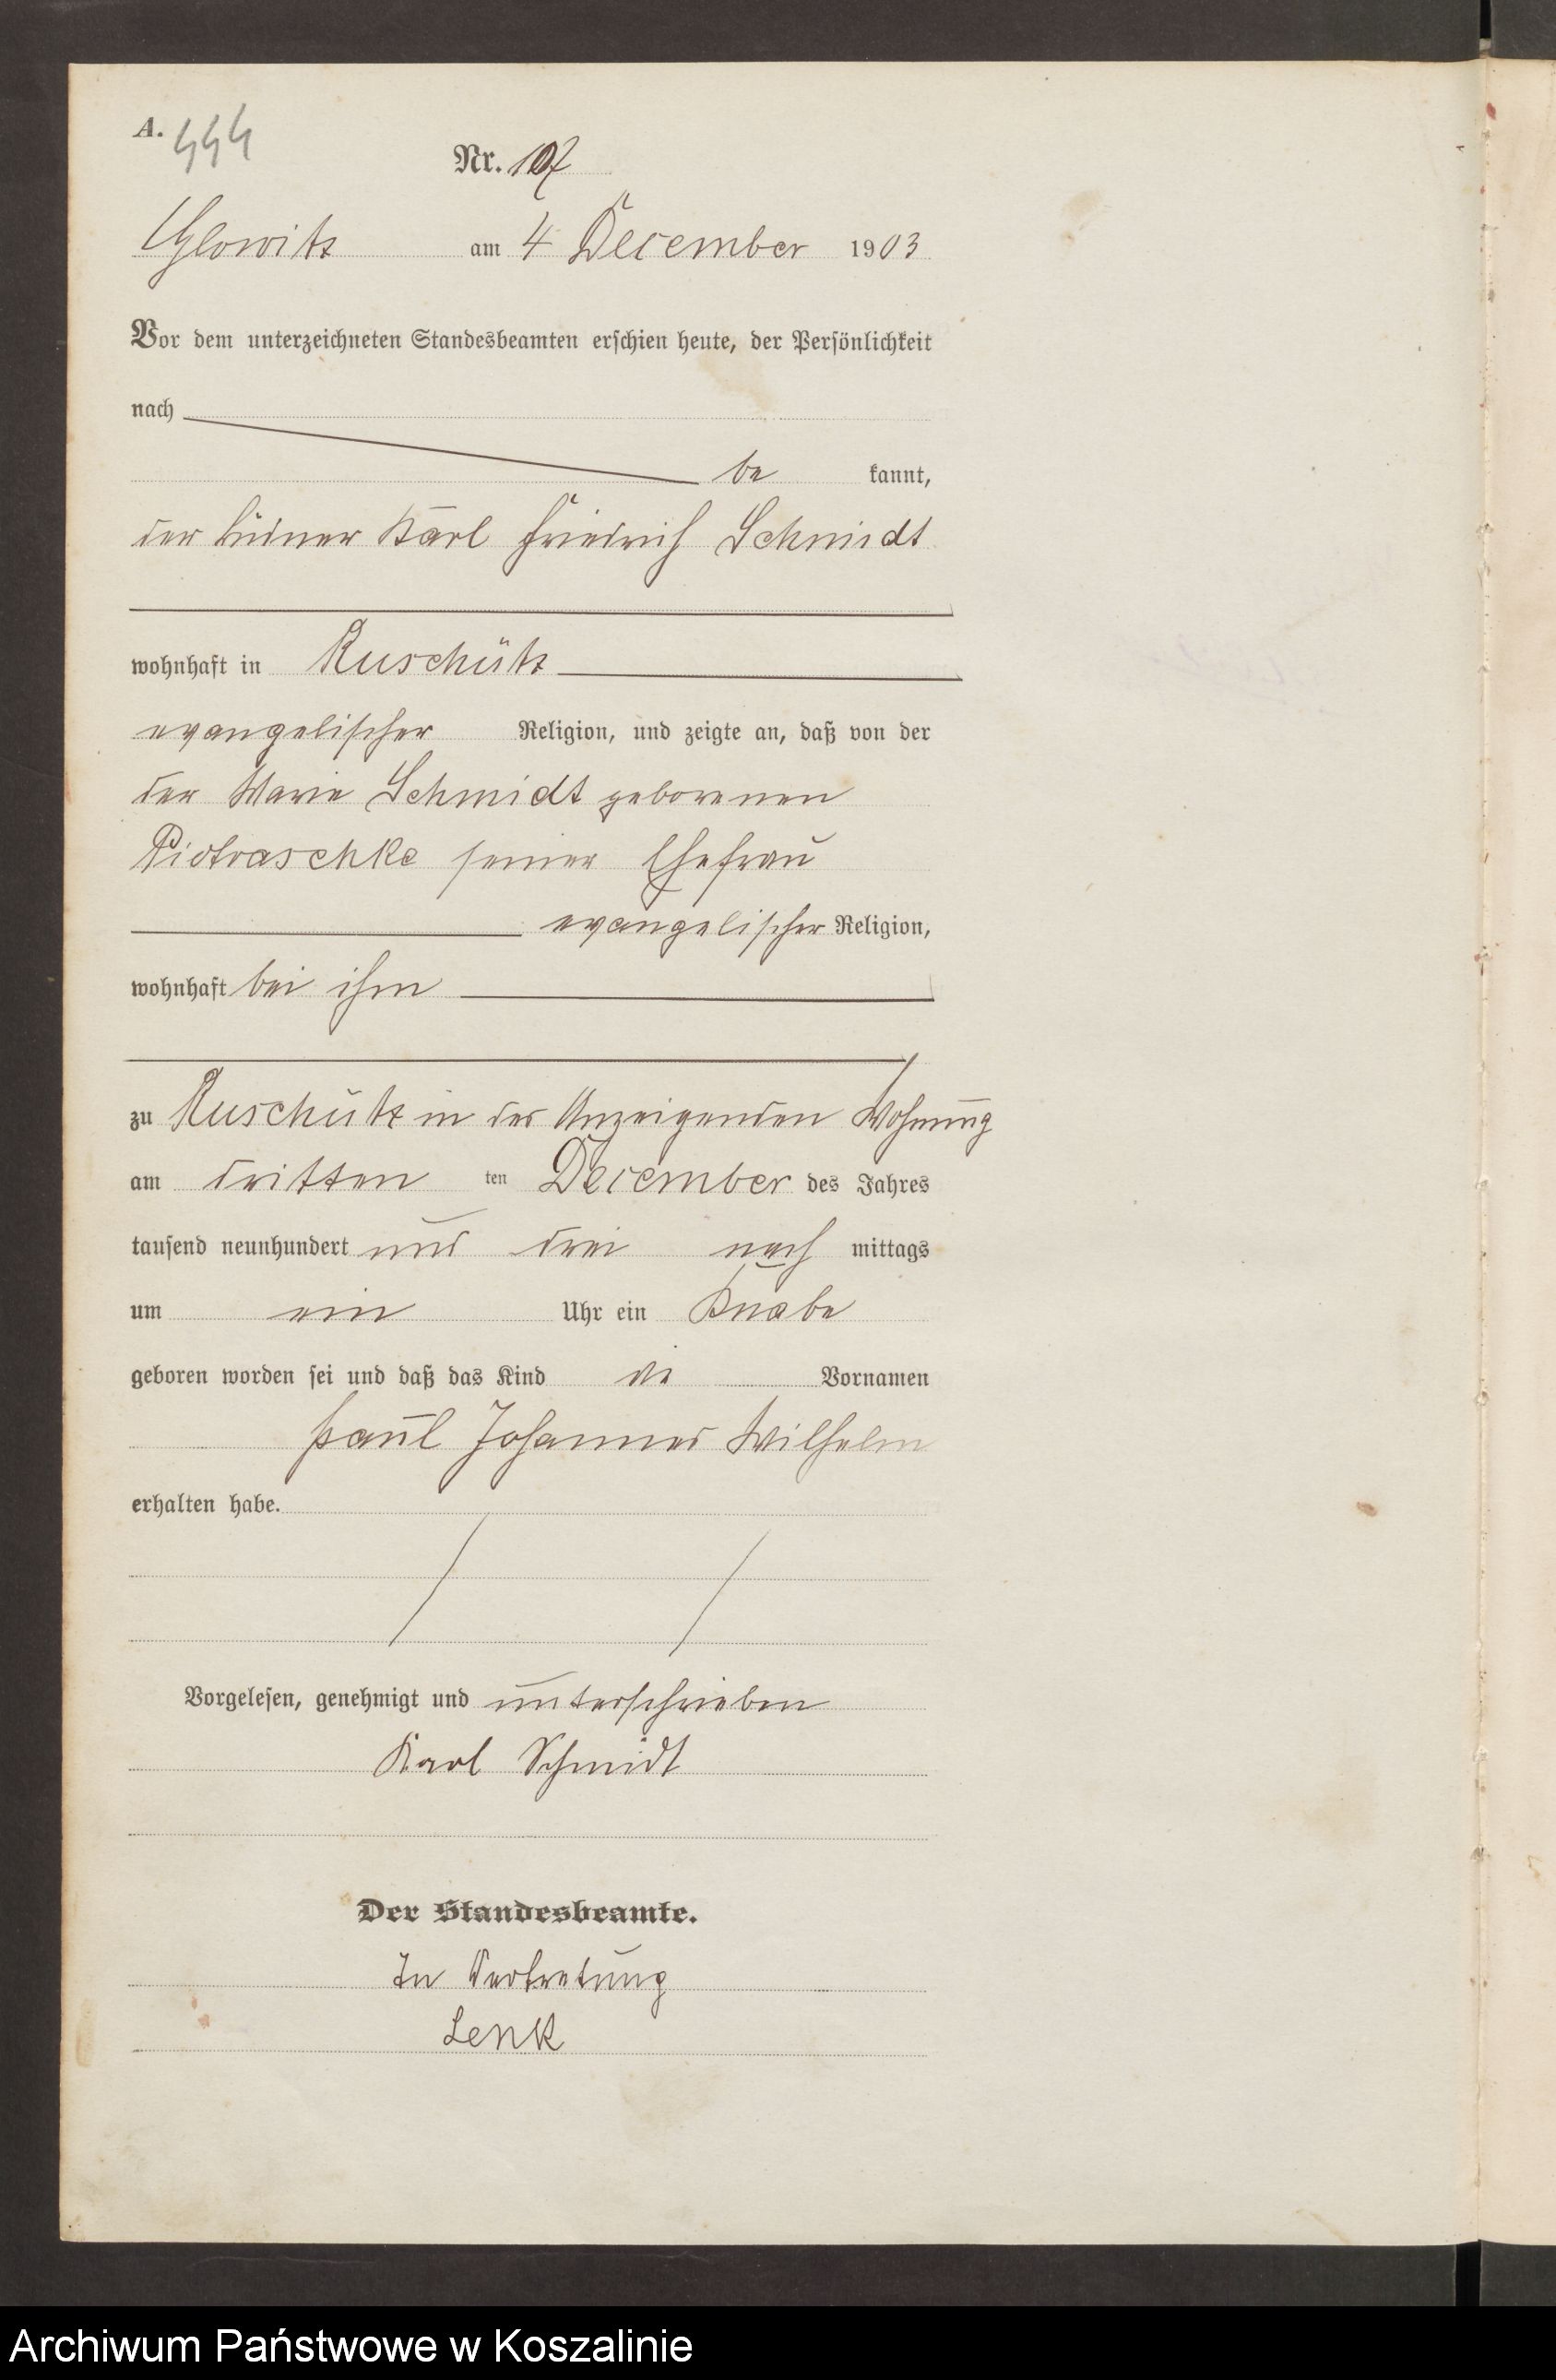 A. 444
Nr. 107
Glowitz am 4 December 1903
Vor dem unterzeichneten Standesbeamten erschien heute, der Persönlichkeit
nach
be kannt,
der Büdner Karl Friedrich Schmidt
wohnhaft in Ruschütz
evangelischer Religion, und zeigte an, daß von der
der Marie Schmidt geborenen
Piotraschke seiner Ehefrau
evangelischer Religion,
wohnhaft bei ihm
zu Ruschütz in des Anzeigenden Wohnung
am dritten ten December des Jahres
tausend neunhundert und drei nach mittags
um ein Uhr ein Knabe
geboren worden sei und daß das Kind die Vornamen
Paul Johannes Wilhelm
erhalten habe.
Vorgelesen, genehmigt und unterschrieben
Karl Schmidt
Der Standesbeamte.
In Vertretung
Lenk
Archiwum Państwowe w Koszalinie